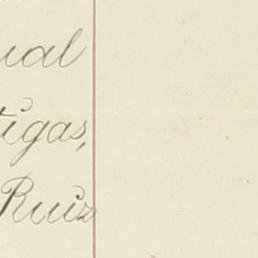 ual
tigas,
Ruiz